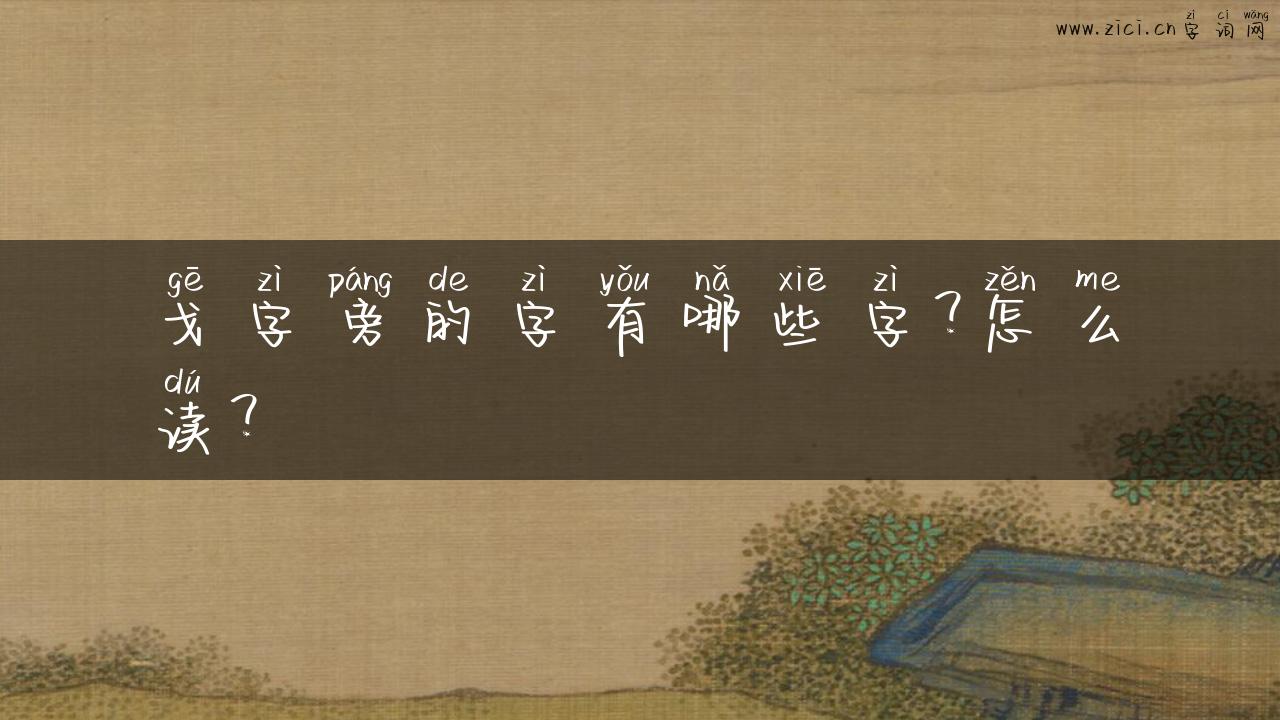 zì cí wǎng
www.zici.cn字词网
gē zì páng de zì yǒu nǎ xiē zì zěn me
戈字旁的字有哪些字?怎么
dú
读?